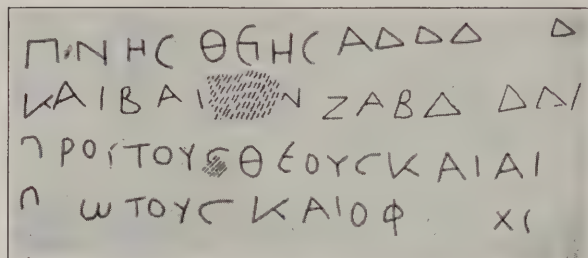 Π.ΝΗС ΘΕΗС ΑΔΔΔ Δ
ΚΑΙΒΑΙ Ν ΖΑΒΔ ΔΛΙ
ΡΟΙΤΟΥ ΘΕΟΥСΚΑΙΑΙ
ωΤΟΥС ΚΑΙΟΦ ΧΙ